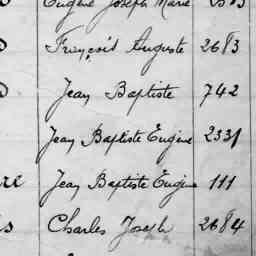 Eugène Joseph Marie
François Auguste 2683
Jean Baptiste 742
Jean Baptiste Eugène 2331
Jean Baptiste Eugène 111
Charles Joseph 2684